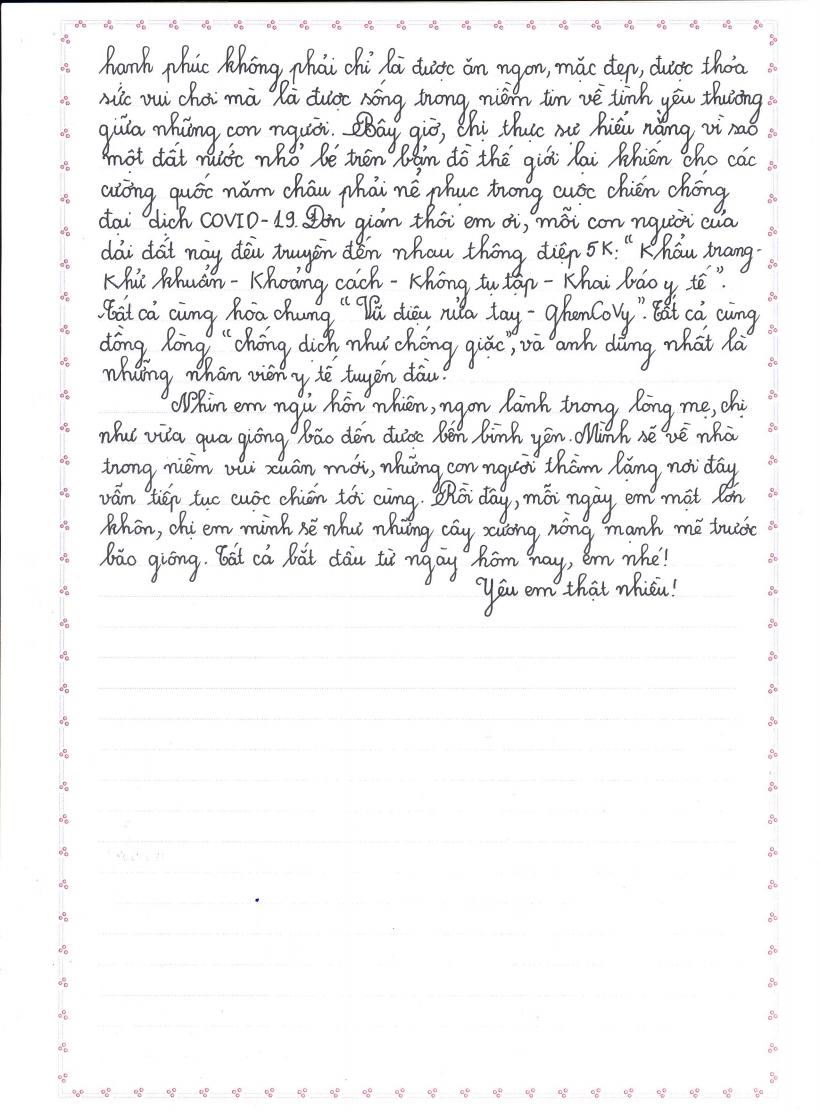 hạnh phúc không phải chỉ là được ăn ngon, mặc đẹp, được thỏa
sức vui chơi mà là được sống trong niềm tin về tình yêu thương
giữa những con người. Bây giờ, chị thực sự hiểu rằng vì sao
một đất nước nhỏ bé trên bản đồ thế giới lại khiến cho các
cường quốc năm châu phải nể phục trong cuộc chiến chống
đại dịch COVID-19. Đơn giản thôi em ơi, mỗi con người của
dải đất này đều truyền đến nhau thông điệp 5K: "Khẩu trang -
Khử khuẩn - Khoảng cách - Không tụ tập - Khai báo y tế".
Tất cả cùng hòa chung "Vũ điệu rửa tay - GhenCoVy". Tất cả cùng
đồng lòng "chống dịch như chống giặc", và anh dũng nhất là
những nhân viên y tế tuyến đầu.
Nhìn em ngủ hồn nhiên, ngon lành trong lòng mẹ, chị
như vừa qua giông bão đến được bên bình yên. Mình sẽ về nhà
trong niềm vui xuân mới, những con người thầm lặng nơi đây
vẫn tiếp tục cuộc chiến tới cùng. Rồi đây, mỗi ngày em một lớn
khôn, chị em mình sẽ như những cây xương rồng mạnh mẽ trước
bão giông. Tất cả bắt đầu từ ngày hôm nay, em nhé!
Yêu em thật nhiều!